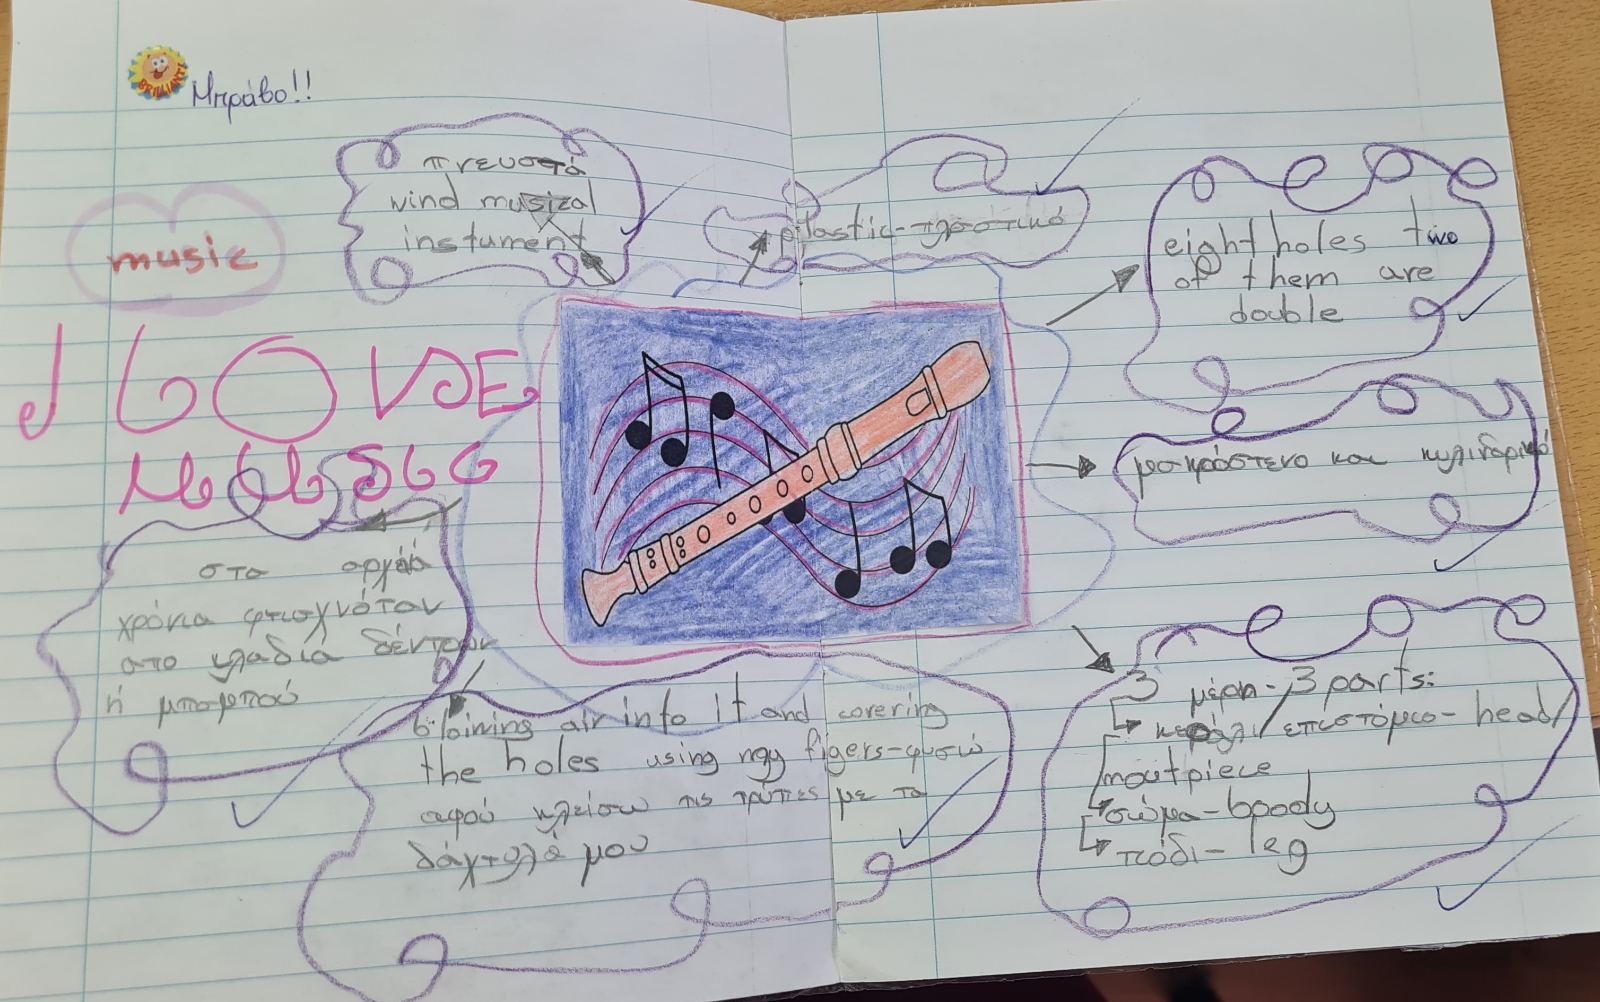 BRILLIANT!
Μπράβο!!
πνευστά
wind musical
instument
plastic-πλαστικό
eight holes two
of them are
double
music
I LOVE
MUSIC
μακρόστενο και κυλινδρικό
στα αρχαία
χρόνια φτιαχνόταν
απο κλαδιά δέντρων
ή μπαμπού
3 μέρη-3 parts:
κεφάλι/επιστόμιο-head/
moutpiece
σώμα-boody
πόδι-leg
bloining air into it and covering
the holes using my figers-φυσώ
αφού κλείσω τις τρύπες με τα
δάχτυλά μου